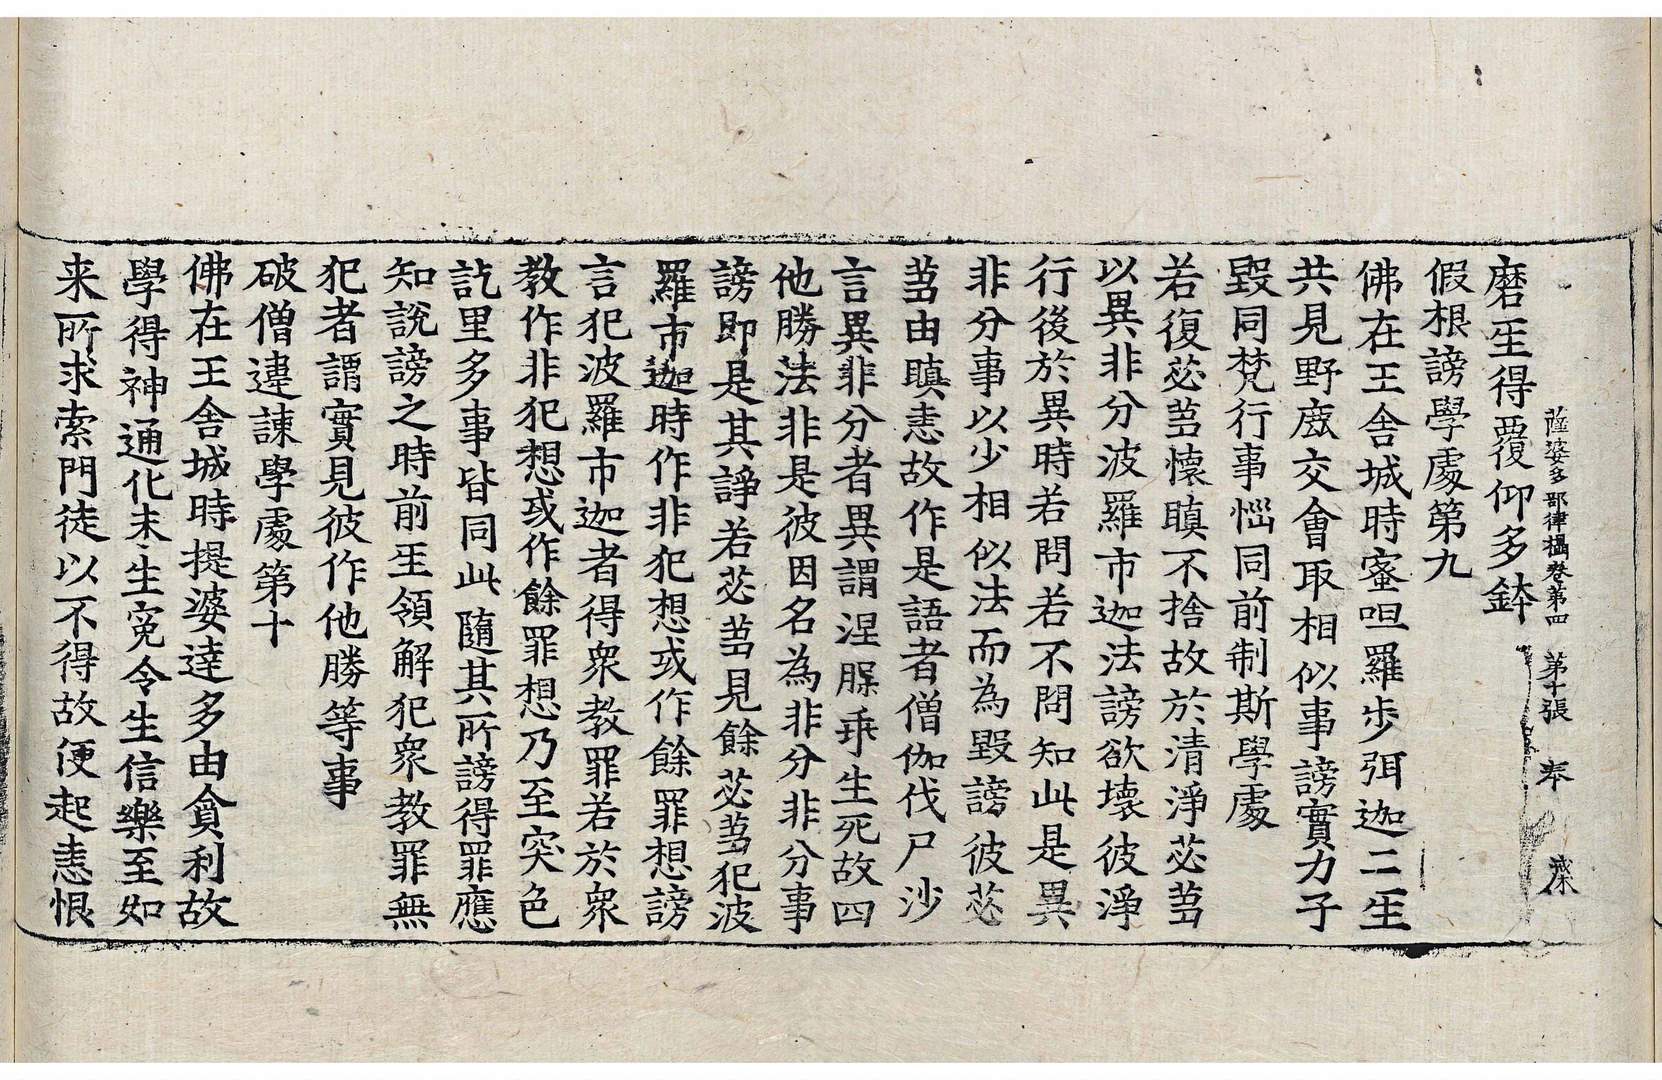 薩婆多部律攝卷第四 第十張 奉
磨𤯔得覆仰多鉢
假根謗學處第九
佛在王舍城時蜜呾羅步弭迦二𤯔
共見野鹿交會取相似事謗實力子
毀同梵行事惱同前制斯學處
若復苾芻懷瞋不捨故於清淨苾芻
以異非分波羅市迦法謗欲壞彼淨
行後於異時若問若不問知此是異
非分事以少相似法而為毀謗彼苾
芻由瞋恚故作是語者僧伽伐尸沙
言異非分者異謂涅縏乖生死故四
他勝法非是彼因名為非分非分事
謗即是其諍若苾芻見餘苾芻犯波
羅市迦時作非犯想或作餘罪想謗
言犯波羅市迦者得衆教罪若於衆
教作非犯想或作餘罪想乃至突色
訖里多事皆同此隨其所謗得罪應
知說謗之時前𤯔領解犯衆教罪無
犯者謂實見彼作他勝等事
破僧違諫學處第十
佛在王舍城時提婆達多由貪利故
學得神通化未生寃令生信樂至如
来所求索門徒以不得故便起恚恨